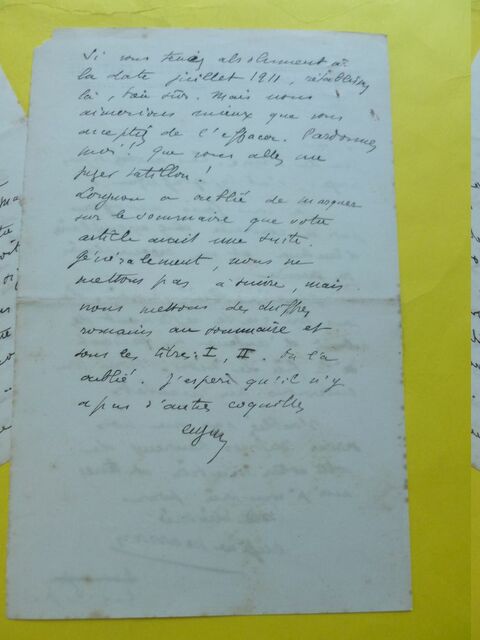 Si vous tenez absolument à
la date juillet 1911, rétablissez
là, bien sûr. Mais nous
aimerions mieux que vous
acceptiez de l'effacer. Pardonnez
moi! que vous allez me
juger tatillon!
a oublié de marquer
sur le sommaire que votre
article avait une suite.
Généralement, nous ne
mettons pas à suivre, mais
nous mettons des chiffres
romains au sommaire et
sous les titres: I, II. On l'a
oublié. J'espère qu'il n'y
a pas d'autres coquilles